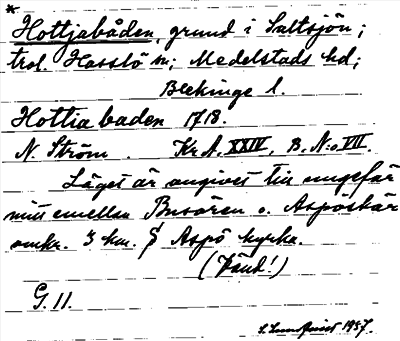 *
Hottjabåden, grund i Saltsjön;
trol. Hasslö sn; Medelstads hd;
Blekinge l.
Hottia baden 1718.
N. Ström. Kr. A. XXIV, B. N:o VII.
Läget är angivet till ungefär
mitt emellan Busören o. Aspöskär
omkr. 3 km. Aspö kyrka.
(Känd!)
G. 11.
S. Lundqvist 1957.